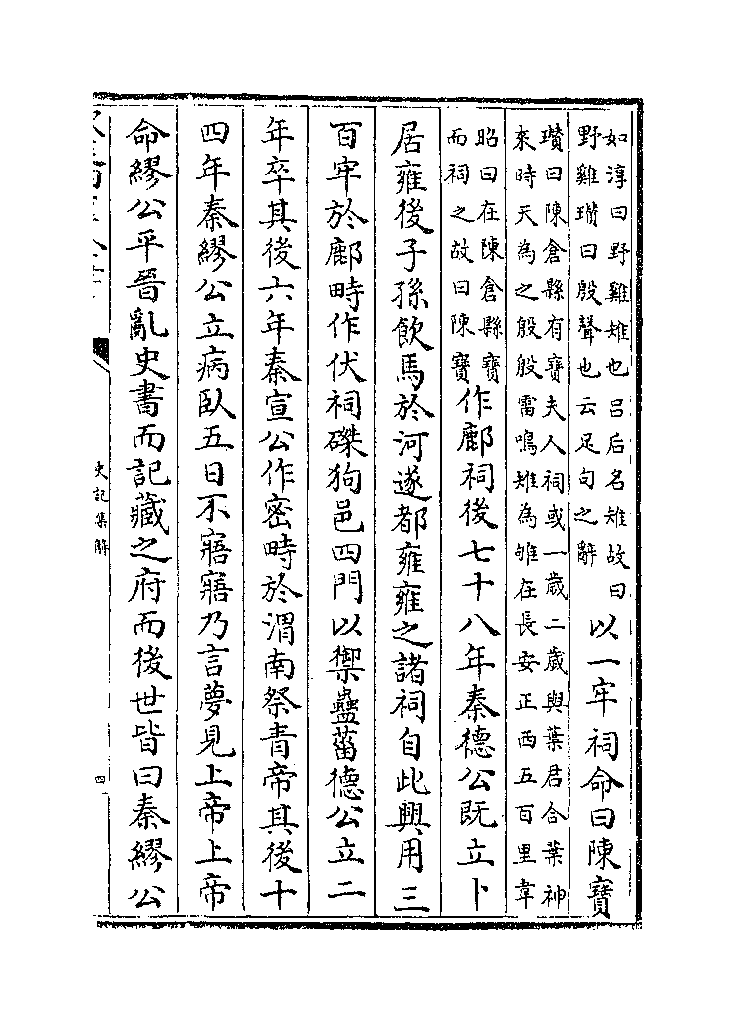 如淳曰野雞雉也呂后名雉故曰
野雞瓚曰殷聲也云足句之辭
以一牢祠命曰陳寶
瓚曰陳倉縣有寶夫人祠或一歲二歲與葉君合葉神
來時天為之殷殷雷鳴雉為雊在長安正西五百里韋
昭曰在陳倉縣寶
而祠之故曰陳寶
作鄜祠後七十八年秦德公既立卜
居雍後子孫飲馬於河遂都雍雍之諸祠自此興用三
百牢於鄜畤作伏祠磔狗邑四門以禦蠱菑德公立二
年卒其後六年秦宣公作密畤於渭南祭青帝其後十
四年秦繆公立病臥五日不寤寤乃言夢見上帝上帝
命繆公平晉亂史書而記藏之府而後世皆曰秦繆公
史記集解
四